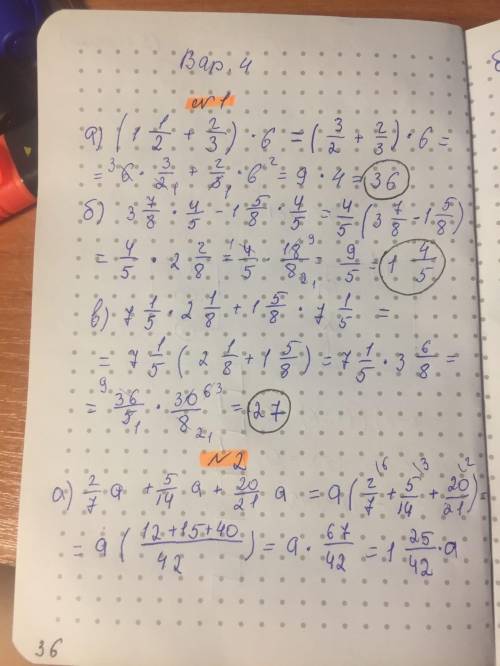 Вар. 4
№1
а) (1 1/2 + 2/3) · 6 = (3/2 + 2/3) · 6 =
= ³6 · 3/2₁ + 2/3₁ · 6² = 9 · 4 = 36
б) 3 7/8 · 4/5 - 1 5/8 · 4/5 = 4/5 (3 7/8 - 1 5/8)
= 4/5 · 2 2/8 = ¹4/5 · 18⁹/8₂₁ = 9/5 = 1 4/5
в) 7 1/5 · 2 1/8 + 1 5/8 · 7 1/5 =
= 7 1/5 (2 1/8 + 1 5/8) = 7 1/5 · 3 6/8 =
= ⁹36/5₁ · 30⁶³/8₂₁ = 27
№2
а) 2/7 a + 5/14 a + 20/21 a = a (2/7\⁶ + 5/14\³ + 20/21\²) =
= a (12+15+40/42) = a · 67/42 = 1 25/42 · a
36